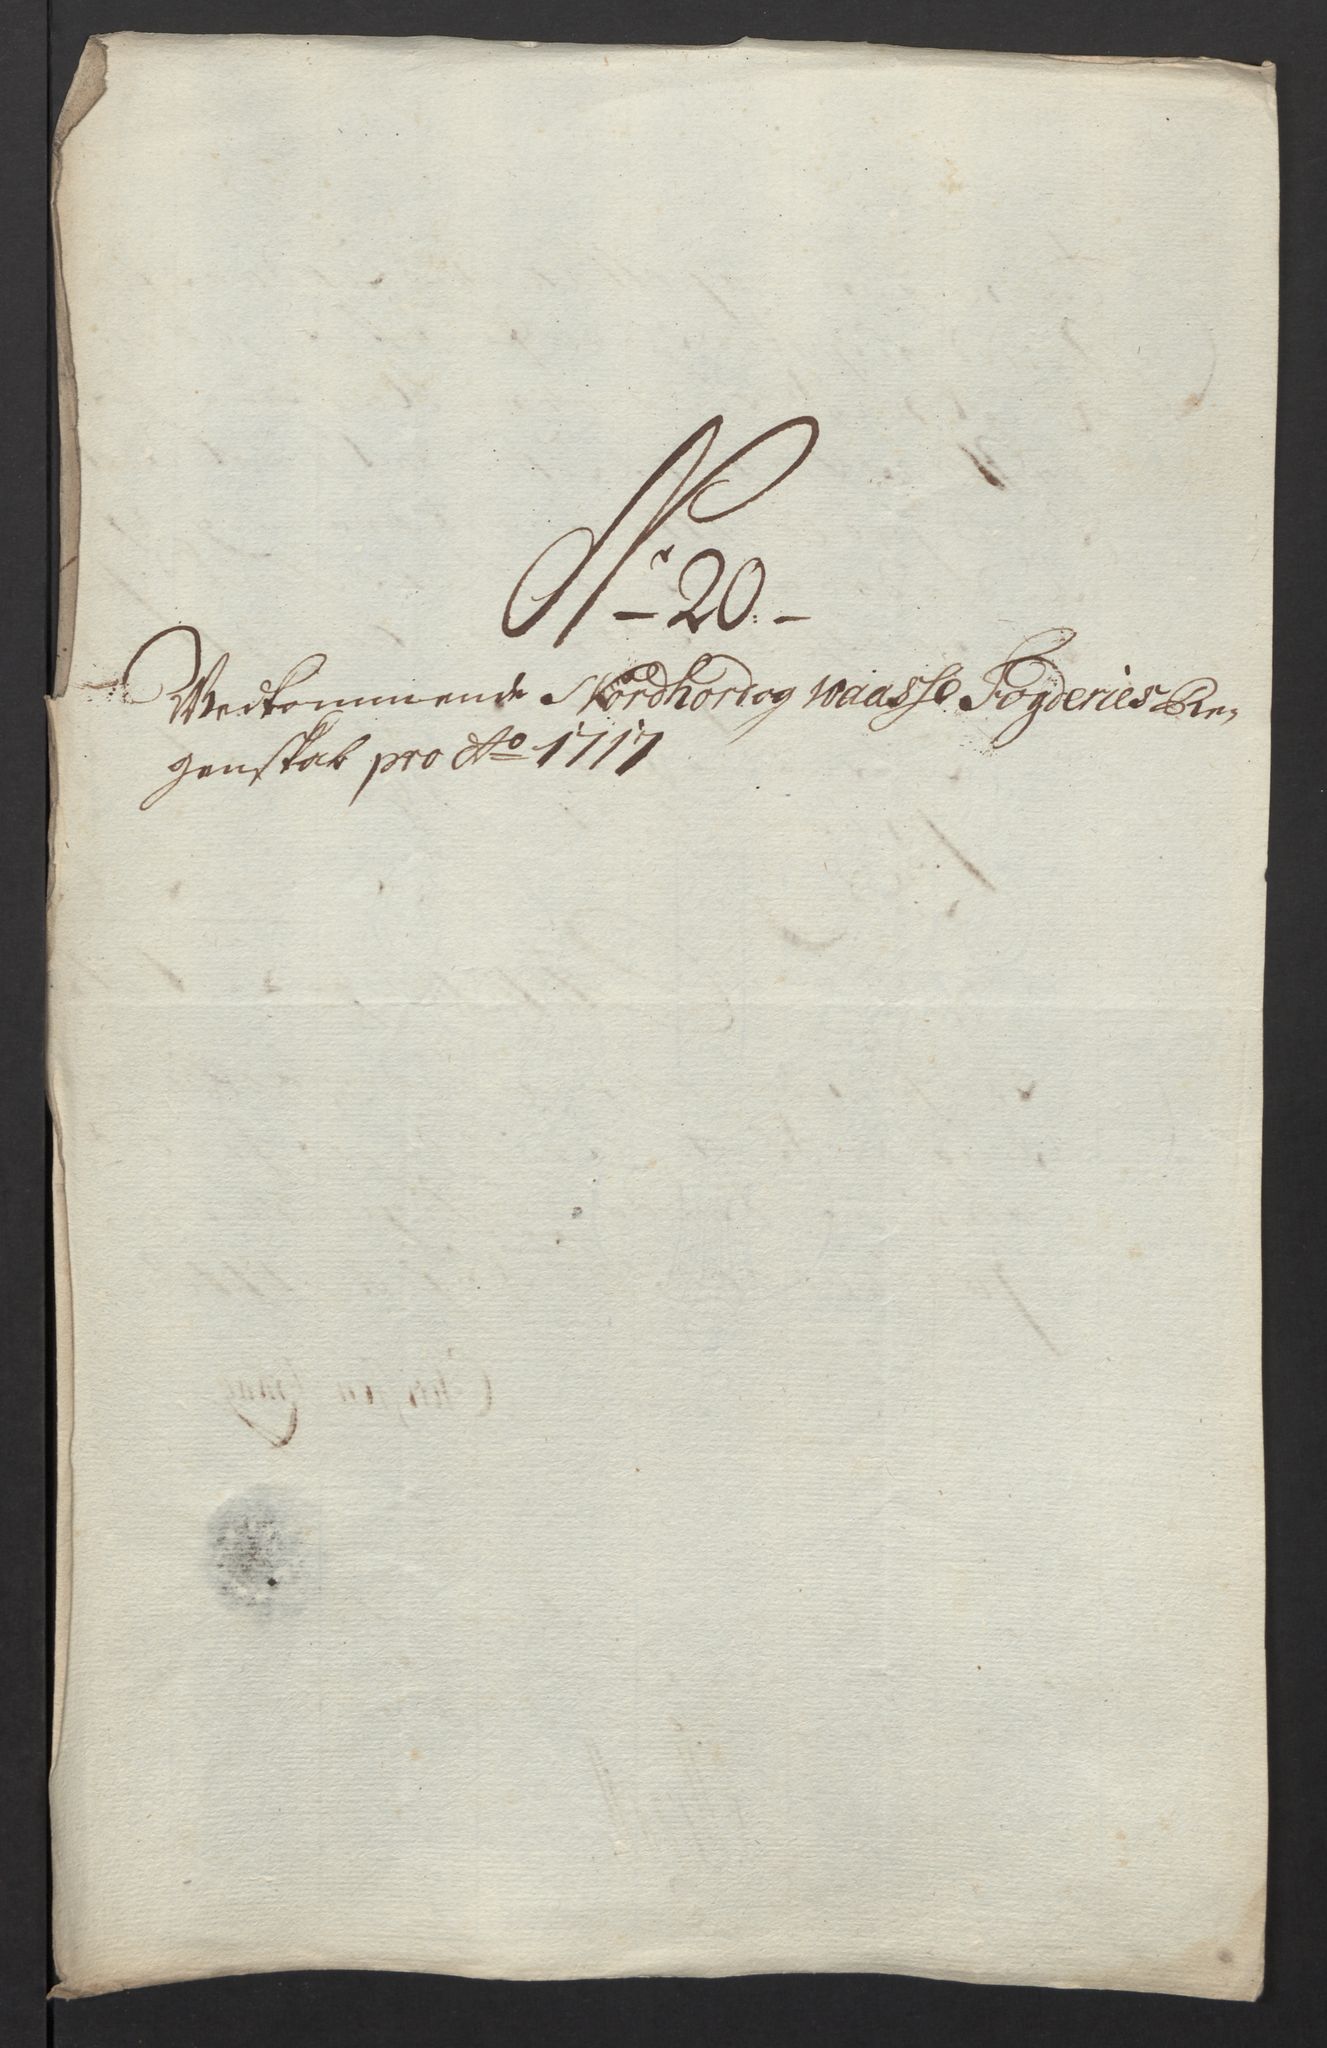 No 20.
Vedkommende Nordhort og Waasse Foyderies Re-
genskab pro Ao 1717